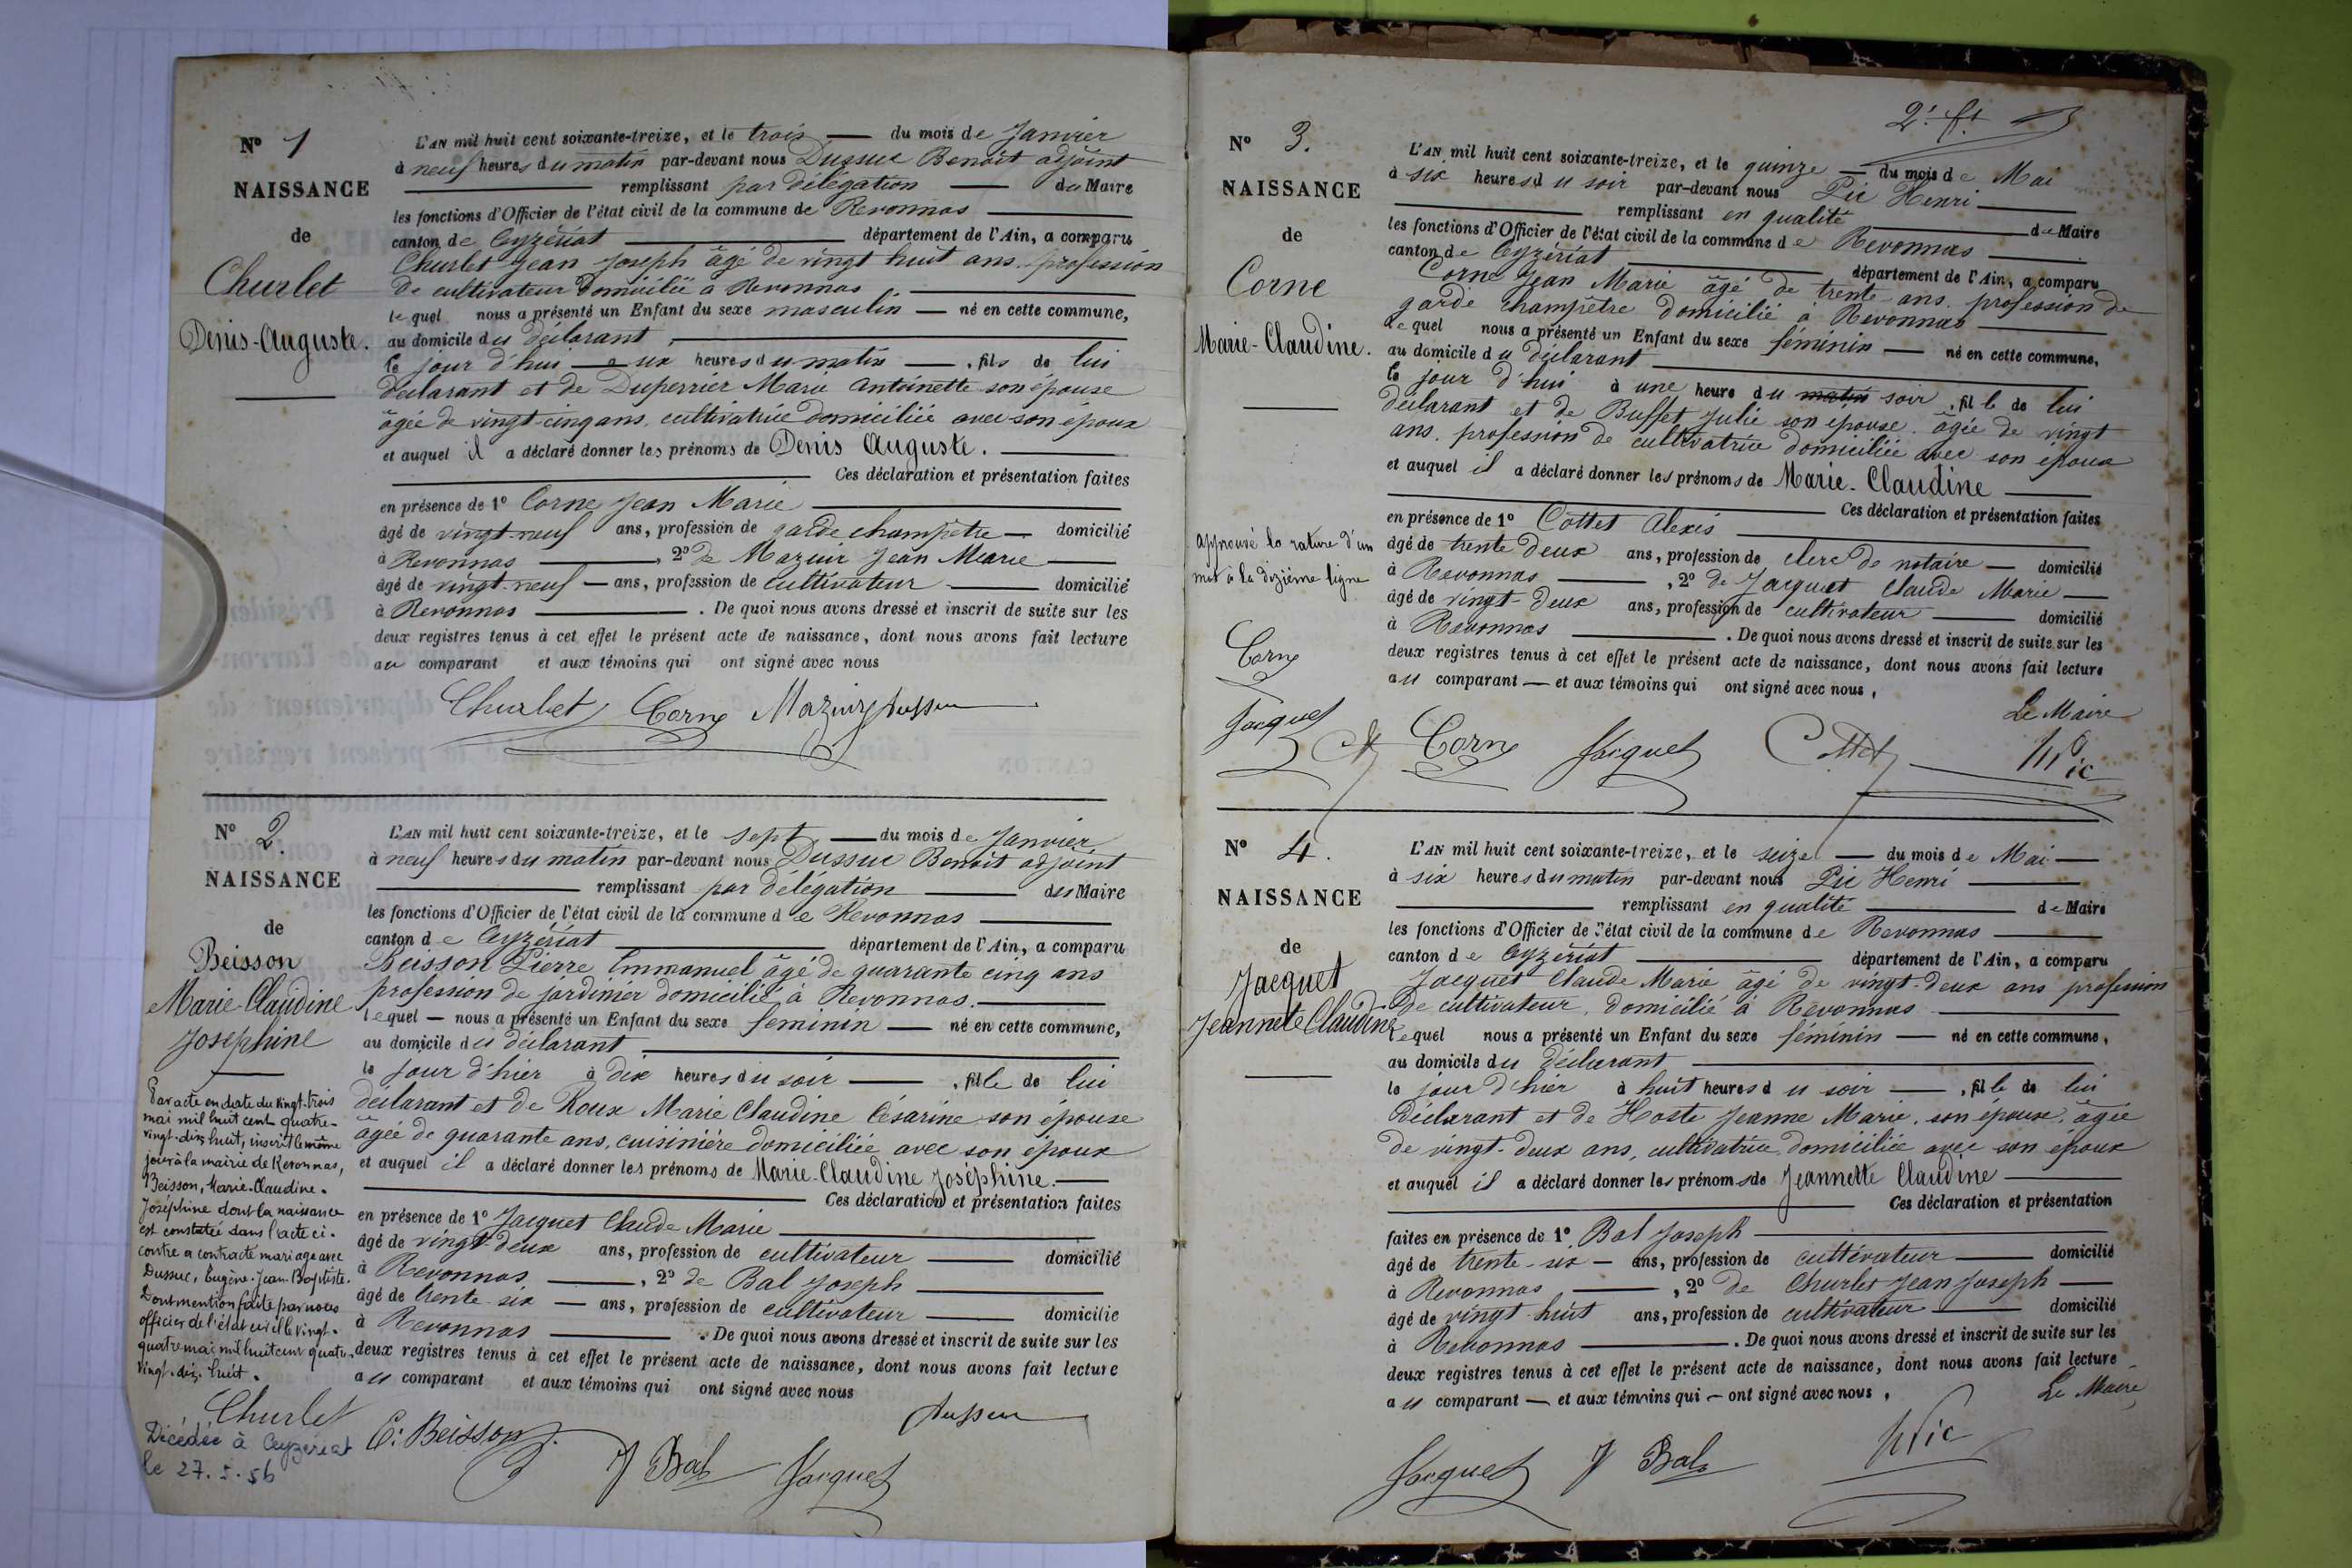 Nº 1
NAISSANCE
de
Churlet
Denis-Auguste.
L'AN mil huit cent soixante-treize, et le trois — du mois de Janvier
à neuf heures du matin par-devant nous Dussuc Benoit adjoint
remplissant par délégation — du Maire
les fonctions d'Officier de l'état civil de la commune de Revonnas
canton de Ceyzériat département de l'Ain, a comparu
Churlet Jean Joseph âgé de vingt huit ans. profession
de cultivateur domicilié à Revonnas
lequel nous a présenté un Enfant du sexe masculin — né en cette commune,
au domicile du déclarant
le jour d'hui à six heures du matin — , fils de lui
déclarant et de Duperrier Marie Antoinette son épouse
âgée de vingt-cinq ans, cultivatrice domiciliée avec son époux
et auquel il a déclaré donner les prénoms de Denis Auguste.
Ces déclaration et présentation faites
en présence de 1º Corne Jean Marie
âgé de vingt-neuf ans, profession de garde champêtre — domicilié
à Revonnas , 2º de Mazuir Jean Marie
âgé de vingt-neuf — ans, profession de cultivateur domicilié
à Revonnas . De quoi nous avons dressé et inscrit de suite sur les
deux registres tenus à cet effet le présent acte de naissance, dont nous avons fait lecture
au comparant et aux témoins qui ont signé avec nous
Churlet Corne Mazuir Dussuc
Nº 2.
NAISSANCE
de
Beisson
Marie-Claudine
Joséphine
Par acte en date du vingt-trois
mai mil huit cent quatre-
vingt-dix huit, inscrit le même
jour à la mairie de Revonnas,
Beisson, Marie-Claudine-
Joséphine dont la naissance
est constatée dans l'acte ci-
contre a contracté mariage avec
Dussuc, Eugène-Jean-Baptiste.
Dont mention faite par nous
officier de l'état civil le vingt-
quatre mai mil huit cent quatre-
vingt-dix-huit.
Churlet
Décédée à Ceyzériat
le 27.5.56
L'AN mil huit cent soixante-treize, et le sept — du mois de Janvier
à neuf heures du matin par-devant nous Dussuc Benoit adjoint
remplissant par délégation des Maire
les fonctions d'Officier de l'état civil de la commune de Revonnas
canton de Ceyzériat département de l'Ain, a comparu
Beisson Pierre Emmanuel âgé de quarante cinq ans
profession de jardinier domicilié à Revonnas.
lequel — nous a présenté un Enfant du sexe féminin — né en cette commune,
au domicile du déclarant
le jour d'hier à dix heures du soir — , fille de lui
déclarant et de Roux Marie Claudine Césarine son épouse
âgée de quarante ans, cuisinière domiciliée avec son époux
et auquel il a déclaré donner les prénoms de Marie-Claudine Joséphine.
Ces déclaration et présentation faites
en présence de 1º Jacquet Claude Marie
âgé de vingt-deux ans, profession de cultivateur domicilié
à Revonnas , 2º de Bal Joseph
âgé de trente-six — ans, profession de cultivateur domicilié
à Revonnas . De quoi nous avons dressé et inscrit de suite sur les
deux registres tenus à cet effet le présent acte de naissance, dont nous avons fait lecture
au comparant et aux témoins qui ont signé avec nous
Dussuc
E. Beisson J Bal Jacquet
2. ft.
Nº 3.
NAISSANCE
de
Corne
Marie-Claudine.
approuvé la rature d'un
mot à la dizième ligne
Corne
Jacquet
L'AN mil huit cent soixante-treize, et le quinze — du mois de Mai
à six heures du soir par-devant nous Pic Henri
remplissant en qualité de Maire
les fonctions d'Officier de l'état civil de la commune de Revonnas
canton de Ceyzériat département de l'Ain, a comparu
Corne Jean Marie âgé de trente ans. profession de
garde champêtre domicilié à Revonnas
lequel nous a présenté un Enfant du sexe féminin — né en cette commune,
au domicile du déclarant
le jour d'hui à une heure du matin soir , fille de lui
déclarant et de Buffet Julie son épouse. âgée de vingt
ans. profession de cultivatrice domiciliée avec son époux
et auquel il a déclaré donner les prénoms de Marie-Claudine
Ces déclaration et présentation faites
en présence de 1º Cottet Alexis
âgé de trente deux ans, profession de clerc de notaire — domicilié
à Revonnas , 2º de Jacquet Claude Marie
âgé de vingt-deux ans, profession de cultivateur domicilié
à Revonnas . De quoi nous avons dressé et inscrit de suite sur les
deux registres tenus à cet effet le présent acte de naissance, dont nous avons fait lecture
au comparant — et aux témoins qui ont signé avec nous,
Le Maire
Corne Jacquet Cottet HPic
Nº 4.
NAISSANCE
de
Jacquet
Jeannette Claudine
L'AN mil huit cent soixante-treize, et le seize — du mois de Mai
à six heures du matin par-devant nous Pic Henri
remplissant en qualité de Maire
les fonctions d'Officier de l'état civil de la commune de Revonnas
canton de Ceyzériat département de l'Ain, a comparu
Jacquet Claude Marie âgé de vingt-deux ans profession
de cultivateur, domicilié à Revonnas
lequel nous a présenté un Enfant du sexe féminin — né en cette commune,
au domicile du déclarant
le jour d'hier à huit heures du soir — , fille de lui
déclarant et de Hoste Jeanne Marie, son épouse, âgée
de vingt-deux ans, cultivatrice domiciliée avec son époux
et auquel il a déclaré donner les prénoms de Jeannette Claudine
Ces déclaration et présentation
faites en présence de 1º Bal Joseph
âgé de trente-six — ans, profession de cultivateur domicilié
à Revonnas , 2º de Churlet Jean Joseph
âgé de vingt huit ans, profession de cultivateur domicilié
à Revonnas . De quoi nous avons dressé et inscrit de suite sur les
deux registres tenus à cet effet le présent acte de naissance, dont nous avons fait lecture
au comparant — et aux témoins qui — ont signé avec nous,
Le Maire
Jacquet J Bal HPic